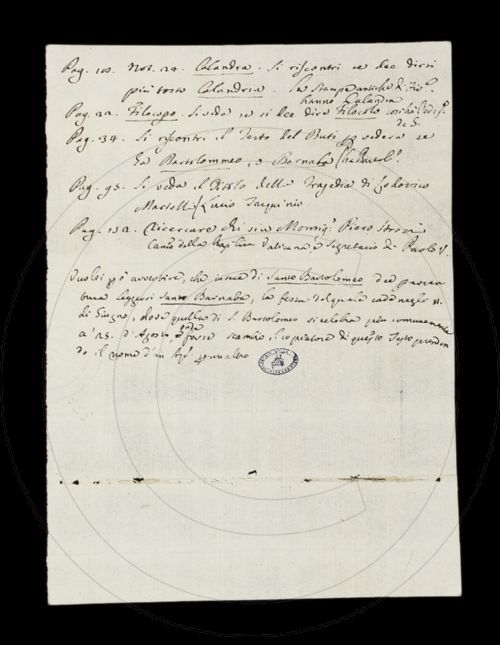 Pag. 10. Not. 24. Calandra. Si riscontri se dee dirsi
più tosto Calandria. Le stampe antiche di
hanno Calandra
Pag. 22. Filocopo. Si veda se si dee dire Filocolo
Pag. 34. Si riscontri il Testo del Buti per vedere se
ha Bartolommeo, o Barnaba
Pag. 95. Si veda il titolo della Tragedia di Lodovico
Martelli
Pag. 152. Ricercare chi sia Monsig. Piero
della Vaticana, e Segretario di Paolo V
Vuolsi però avvertire, che invece di Santo Bartolomeo dee
leggersi Santo Barnaba, la festa del quale cade negli 11.
di Giugno, dove quella di S. Bartolomeo si celebra più comunemente
a' 25. d'Agosto, forse scambiò il copiatore di questo Testo prenden
do il nome d'un per un altro